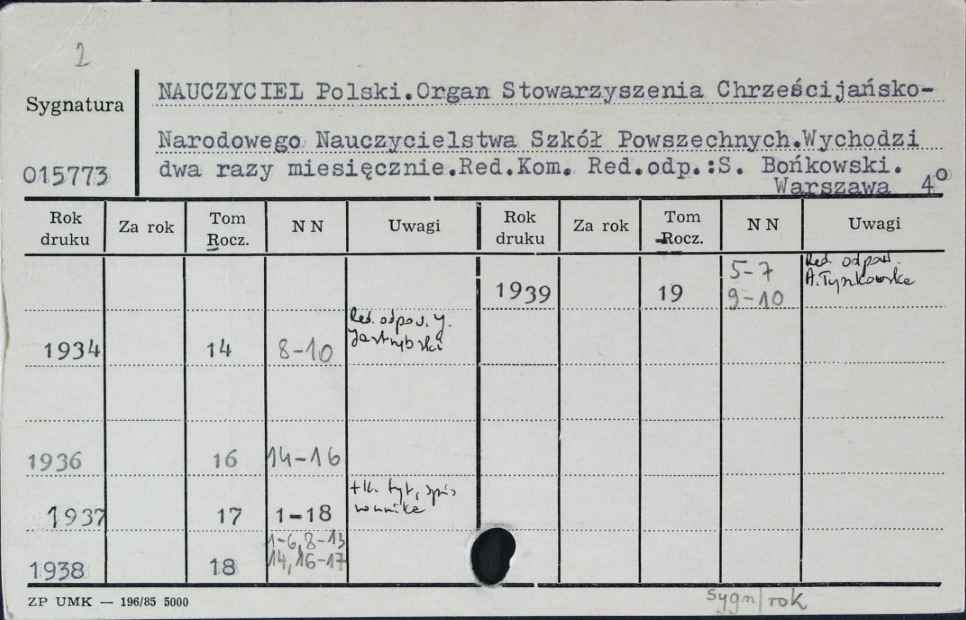 2
Sygnatura
NAUCZYCIEL Polski.Organ Stowarzyszenia Chrześcijańsko-
Narodowego Nauczycielstwa Szkół Powszechnych.Wychodzi
015773
dwa razy miesięcznie.Red.Kom. Red.odp.:S. Bońkowski.
Warszawa 4°
Rok druku Za rok Tom Rocz. NN Uwagi Rok druku Za rok Tom Rocz. NN Uwagi
1939 19 5-7 9-10 Red. odpow. A.Tynkowska
1934 14 8-10 Red. odpow. J. Jastrzębski
1936 16 14-16
1937 17 1-18 + k. tyt., spis
1938 18 1-6, 8-13 14, 16-17
ZP UMK — 196/85 5000
Sygn/rok